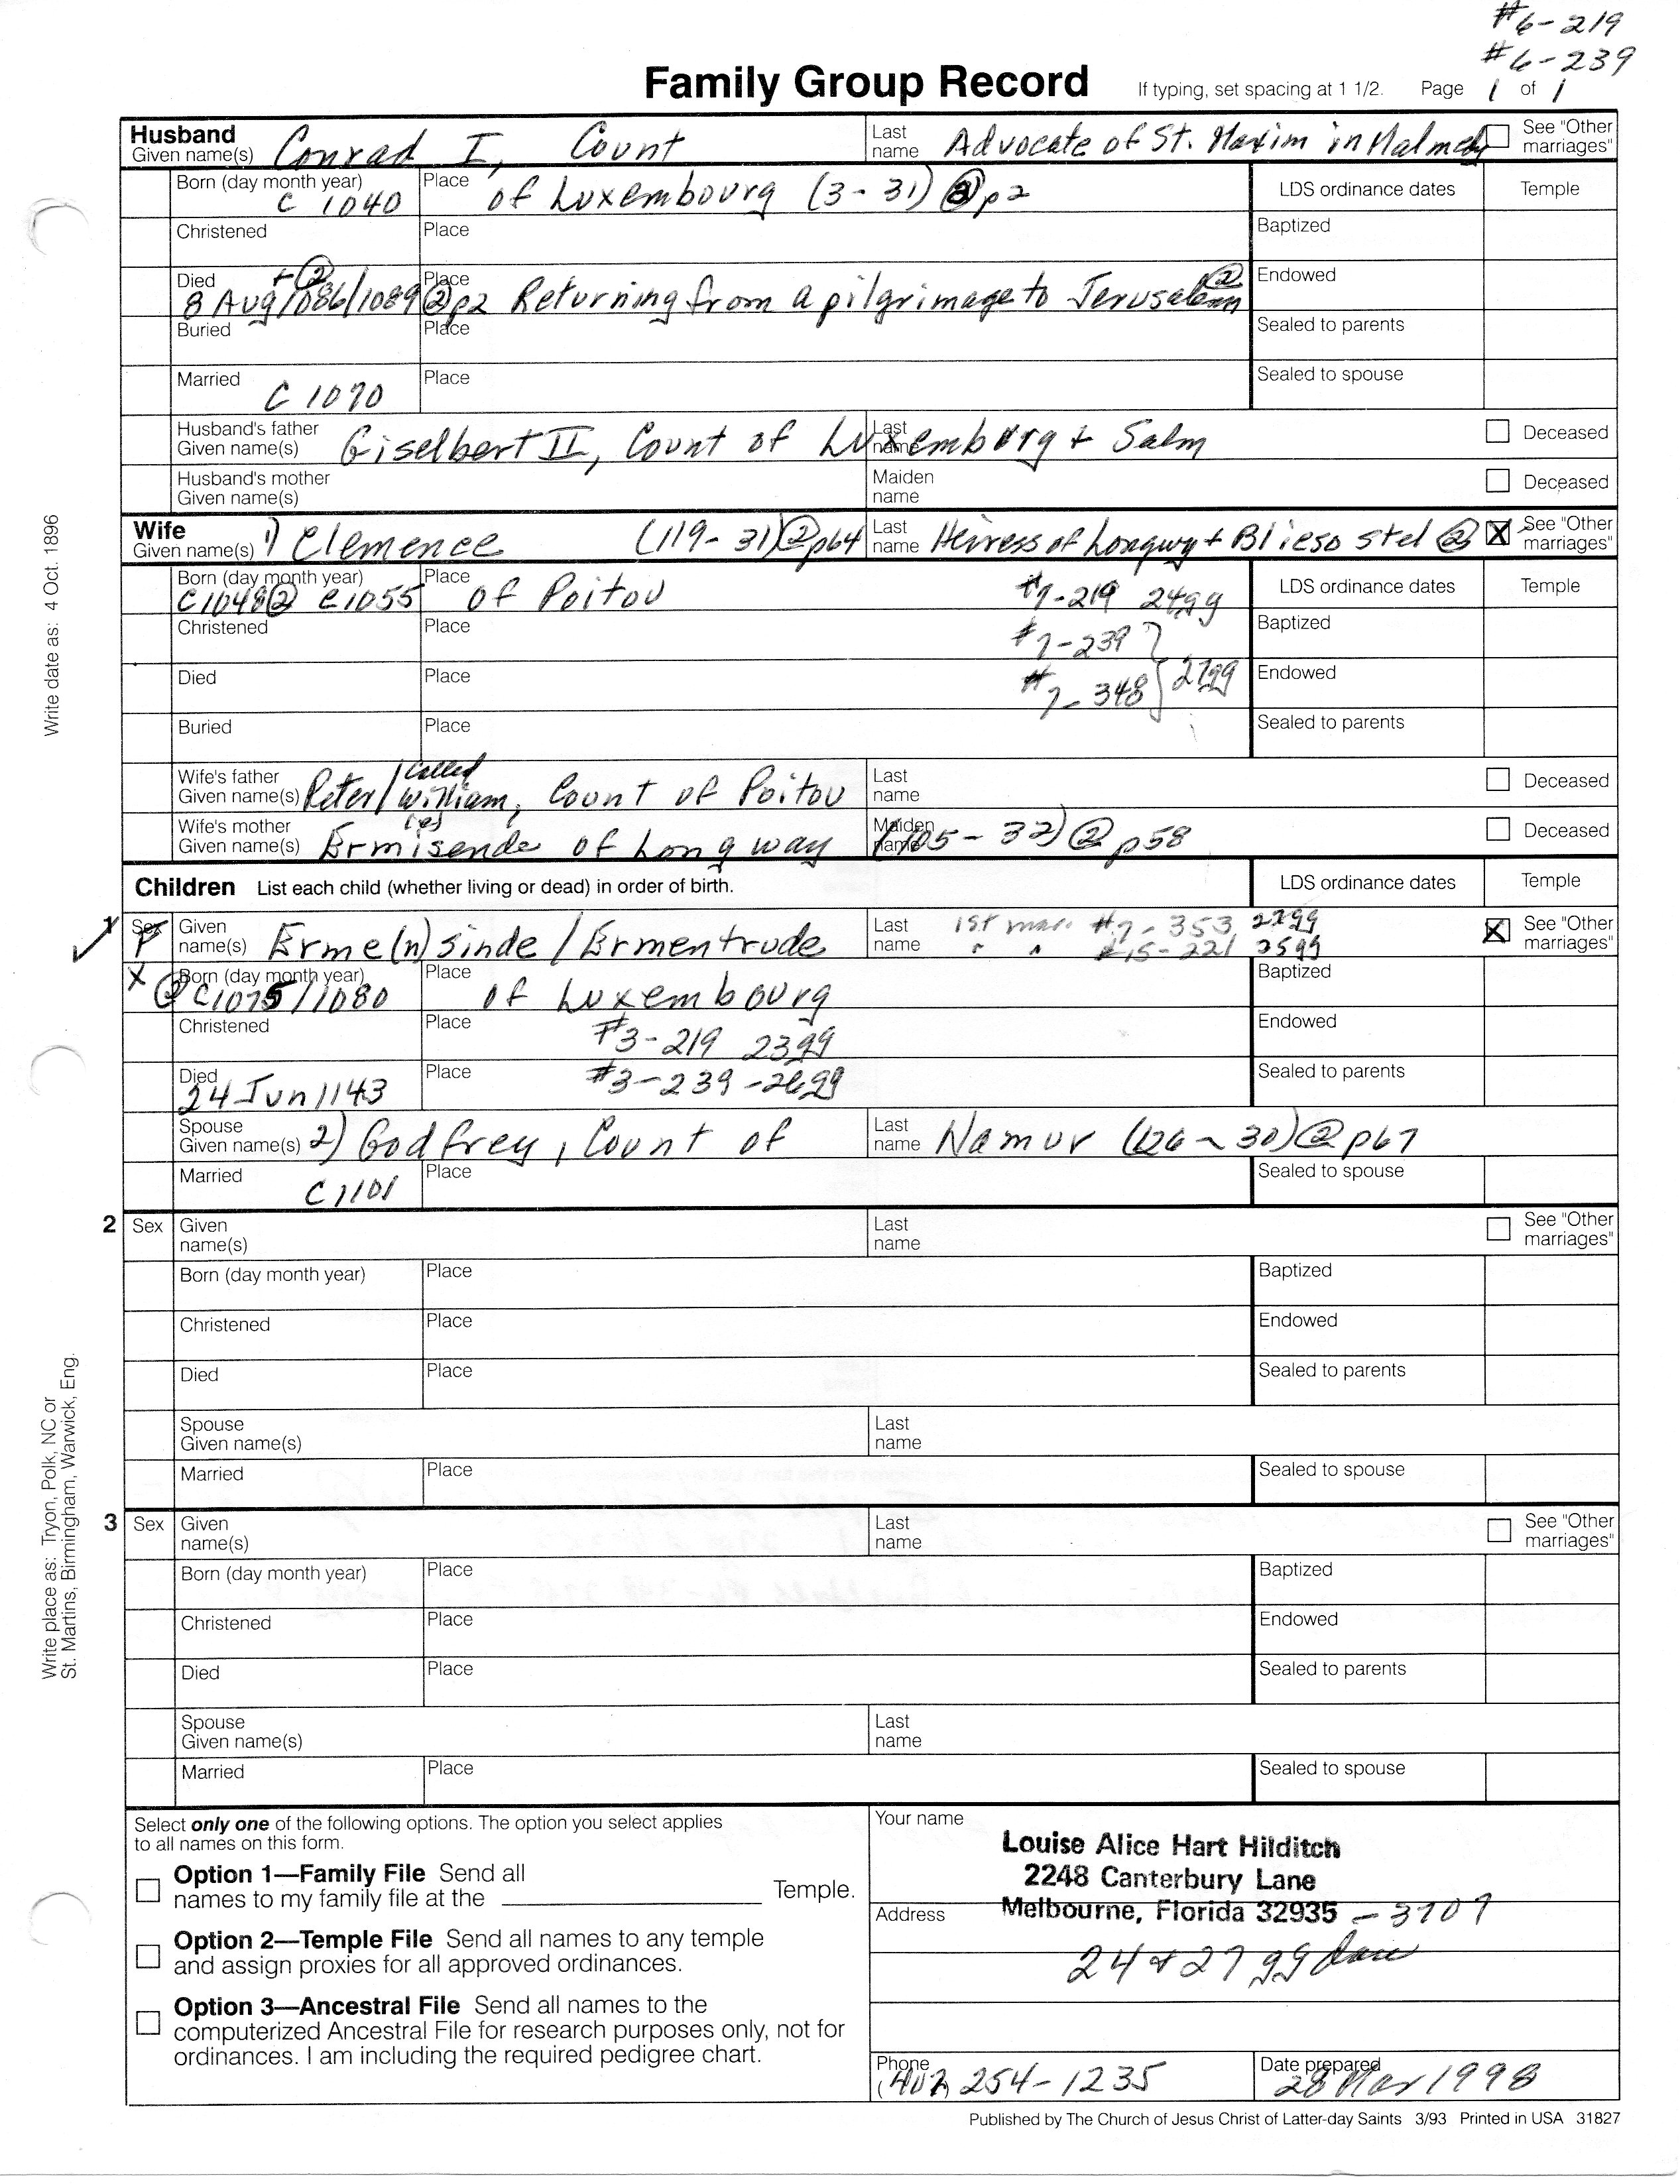 #6-219
#6-239
Family Group Record If typing, set spacing at 1 1/2. Page 1 of 1
Husband
Given name(s) Conrad I, Count Last name Advocate of St. Maxim in Malmedy See "Other marriages"
Born (day month year) C 1040 Place of Luxembourg (3-31) p2 LDS ordinance dates Temple
Christened Place Baptized
Died 8 Aug 1086/1089 + (2) (2) p2 Place Returning from a pilgrimage to Jerusalem (2) Endowed
Buried Place Sealed to parents
Married C 1070 Place Sealed to spouse
Husband's father Given name(s) Giselbert II, Count of Luxemburg + Salm Last name Deceased
Husband's mother Given name(s) Maiden name Deceased
Wife
Given name(s) 1) Clemence (119-31) (2) p64 Last name Heiress of Longwy + Blieso stel (2) X See "Other marriages"
Born (day month year) C1048 (2) C1055 Place of Poitou #7-219 24gg LDS ordinance dates Temple
Christened Place #7-239 Baptized
Died Place #7-348 } 27gg Endowed
Buried Place Sealed to parents
Wife's father Given name(s) Peter/called William, Count of Poitou Last name Deceased
Wife's mother Given name(s) Ermisende (es) of Longway Maiden name (105-32) (2) p58 Deceased
Children List each child (whether living or dead) in order of birth. LDS ordinance dates Temple
1 Sex F Given name(s) Erme(n)sinde / Ermentrude Last name 1st mar. #7-353, 27gg X See "Other marriages"
" " #15-221 25gg
X Born (day month year) (2) C1075/1080 Place of Luxembourg Baptized
Christened Place #3-219 23gg Endowed
Died 24 Jun 1143 Place #3-239-26gg Sealed to parents
Spouse Given name(s) 2) Godfrey, Count of Last name Namur (126-30) (2) p67
Married C 1101 Place Sealed to spouse
2 Sex Given name(s) Last name See "Other marriages"
Born (day month year) Place Baptized
Christened Place Endowed
Died Place Sealed to parents
Spouse Given name(s) Last name
Married Place Sealed to spouse
3 Sex Given name(s) Last name See "Other marriages"
Born (day month year) Place Baptized
Christened Place Endowed
Died Place Sealed to parents
Spouse Given name(s) Last name
Married Place Sealed to spouse
Select only one of the following options. The option you select applies
to all names on this form.
Option 1—Family File Send all
names to my family file at the Temple.
Option 2—Temple File Send all names to any temple
and assign proxies for all approved ordinances.
Option 3—Ancestral File Send all names to the
computerized Ancestral File for research purposes only, not for
ordinances. I am including the required pedigree chart.
Your name
Louise Alice Hart Hilditch
2248 Canterbury Lane
Address Melbourne, Florida 32935 - 3707
24 + 27 gg
Phone (407) 254-1235 Date prepared 28 Mar 1998
Published by The Church of Jesus Christ of Latter-day Saints 3/93 Printed in USA 31827
Write date as: 4 Oct. 1896
Write place as: Tryon, Polk, NC or
St. Martins, Birmingham, Warwick, Eng.